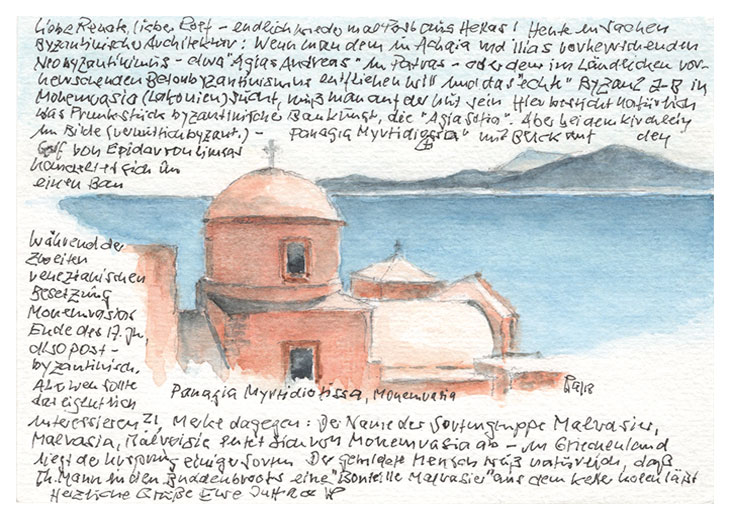 Liebe Renate, lieber Rolf – endlich wieder mal Post aus Hellas! Heute in Sachen
Byzantinische Architektur: Wenn man dem in Achaia und Ilias vorherrschenden
Neobyzantinismus – etwa "Agias Andreas" in Patras – oder dem im Ländlichen vor-
herrschenden Betonbyzantinismus entfliehen will und das "echte" Byzanz z.B. in
Monemvasia (Lakonien) sucht, muß man auf der Hut sein. Hier besticht natürlich
das Prunkstück byzantinischer Baukunst, die "Agia Sofia". Aber bei dem Kirchlein
im Bilde (vermeintlich byzant.) – Panagia Myrtidiotissa" mit Blick auf den
Golf von Epidavron Limiras
handelt es sich um
einen Bau
während der
zweiten
venezianischen
Besetzung
Monemvasias
Ende des 17. Jh,
also post-
byzantinisch.
Aber wen sollte
das eigentlich
Panagia Myrtidiotissa, Monemvasia
/18
interessieren?!, Merke dagegen: Der Name der Sortengruppe Malvasier,
Malvasia, Malvoisie leitet sich von Monemvasia ab – in Griechenland
liegt der Ursprung einiger Sorten. Der gebildete Mensch weiß natürlich, daß
Th. Mann in den Buddenbrooks eine "Bouteille Malvasier" aus dem Keller holen läßt
Herzliche Grüße Eure Jutta &